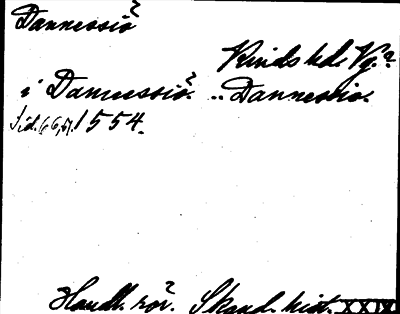 Dannessiö?
Kinds hd. Vg.?
i Dannessiö?. .. Dannessio.
Sid. 66, 67. 1554.
Handl. rör? Skand. hist. XXIX